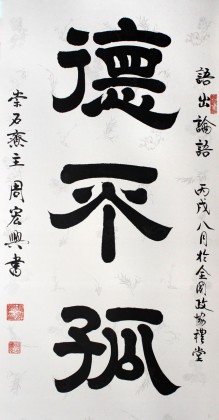 語出論語 丙戌八月於全國政協禮堂
德不孤
崇石齋主 周宏興書